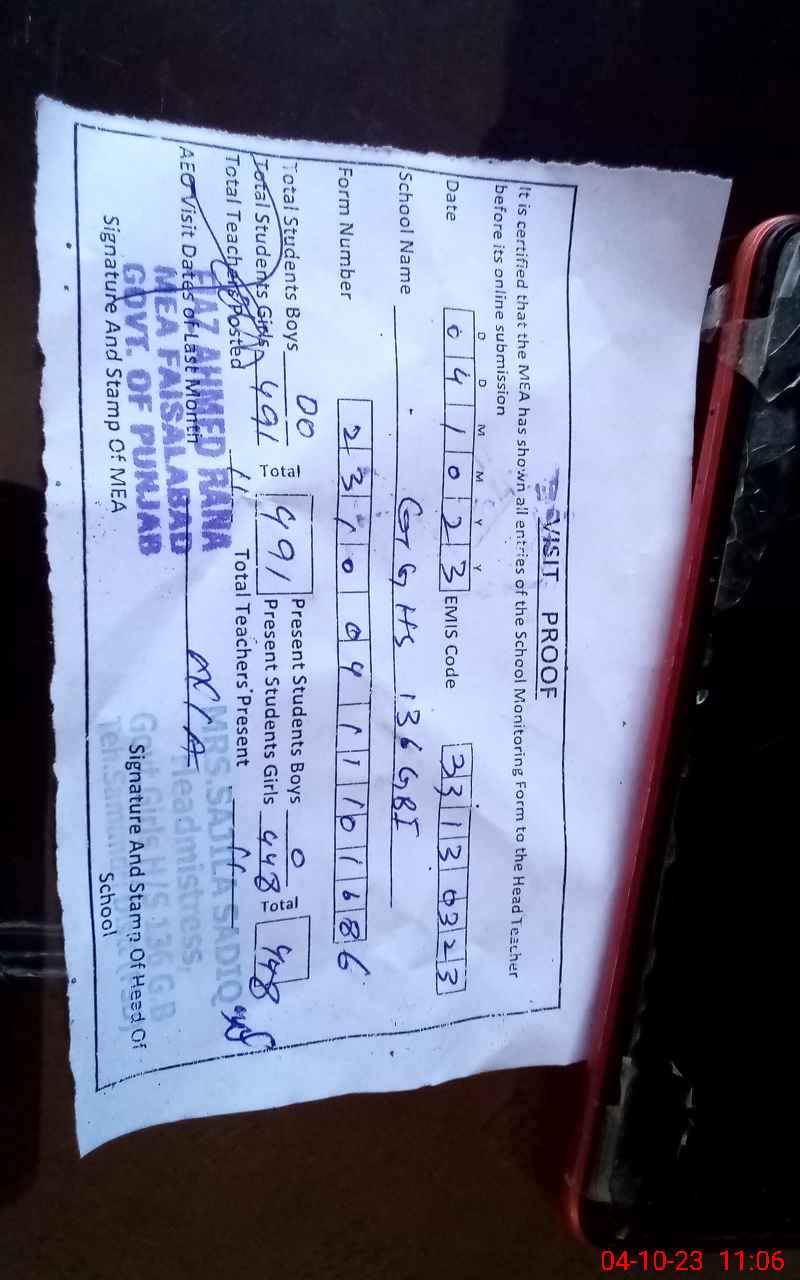 VISIT PROOF
It is certified that the MEA has shown all entries of the School Monitoring Form to the Head Teacher
before its online submission
D D M M Y Y
Date 0 4 1 0 2 3 EMIS Code 3 3 1 3 0 3 2 3
School Name GGHS 136 GBI
Form Number 2 3 1 0 0 4 1 1 10 1 6 8 6
Total Students Boys 00 Present Students Boys 0
Total Students Girls 491 Total 491 Present Students Girls 448 Total 448
Total Teachers Posted 11 Total Teachers Present 11
AEO Visit Dates of Last Month
EIAZ AHMED RANA
MEA FAISALABAD
GOVT. OF PUNJAB
MRS. SAJILA SADIQ
Headmistress,
Govt Girls H/S 136 G.B
Signature And Stamp Of MEA
Signature And Stamp Of Head Of
School
04-10-23 11:06